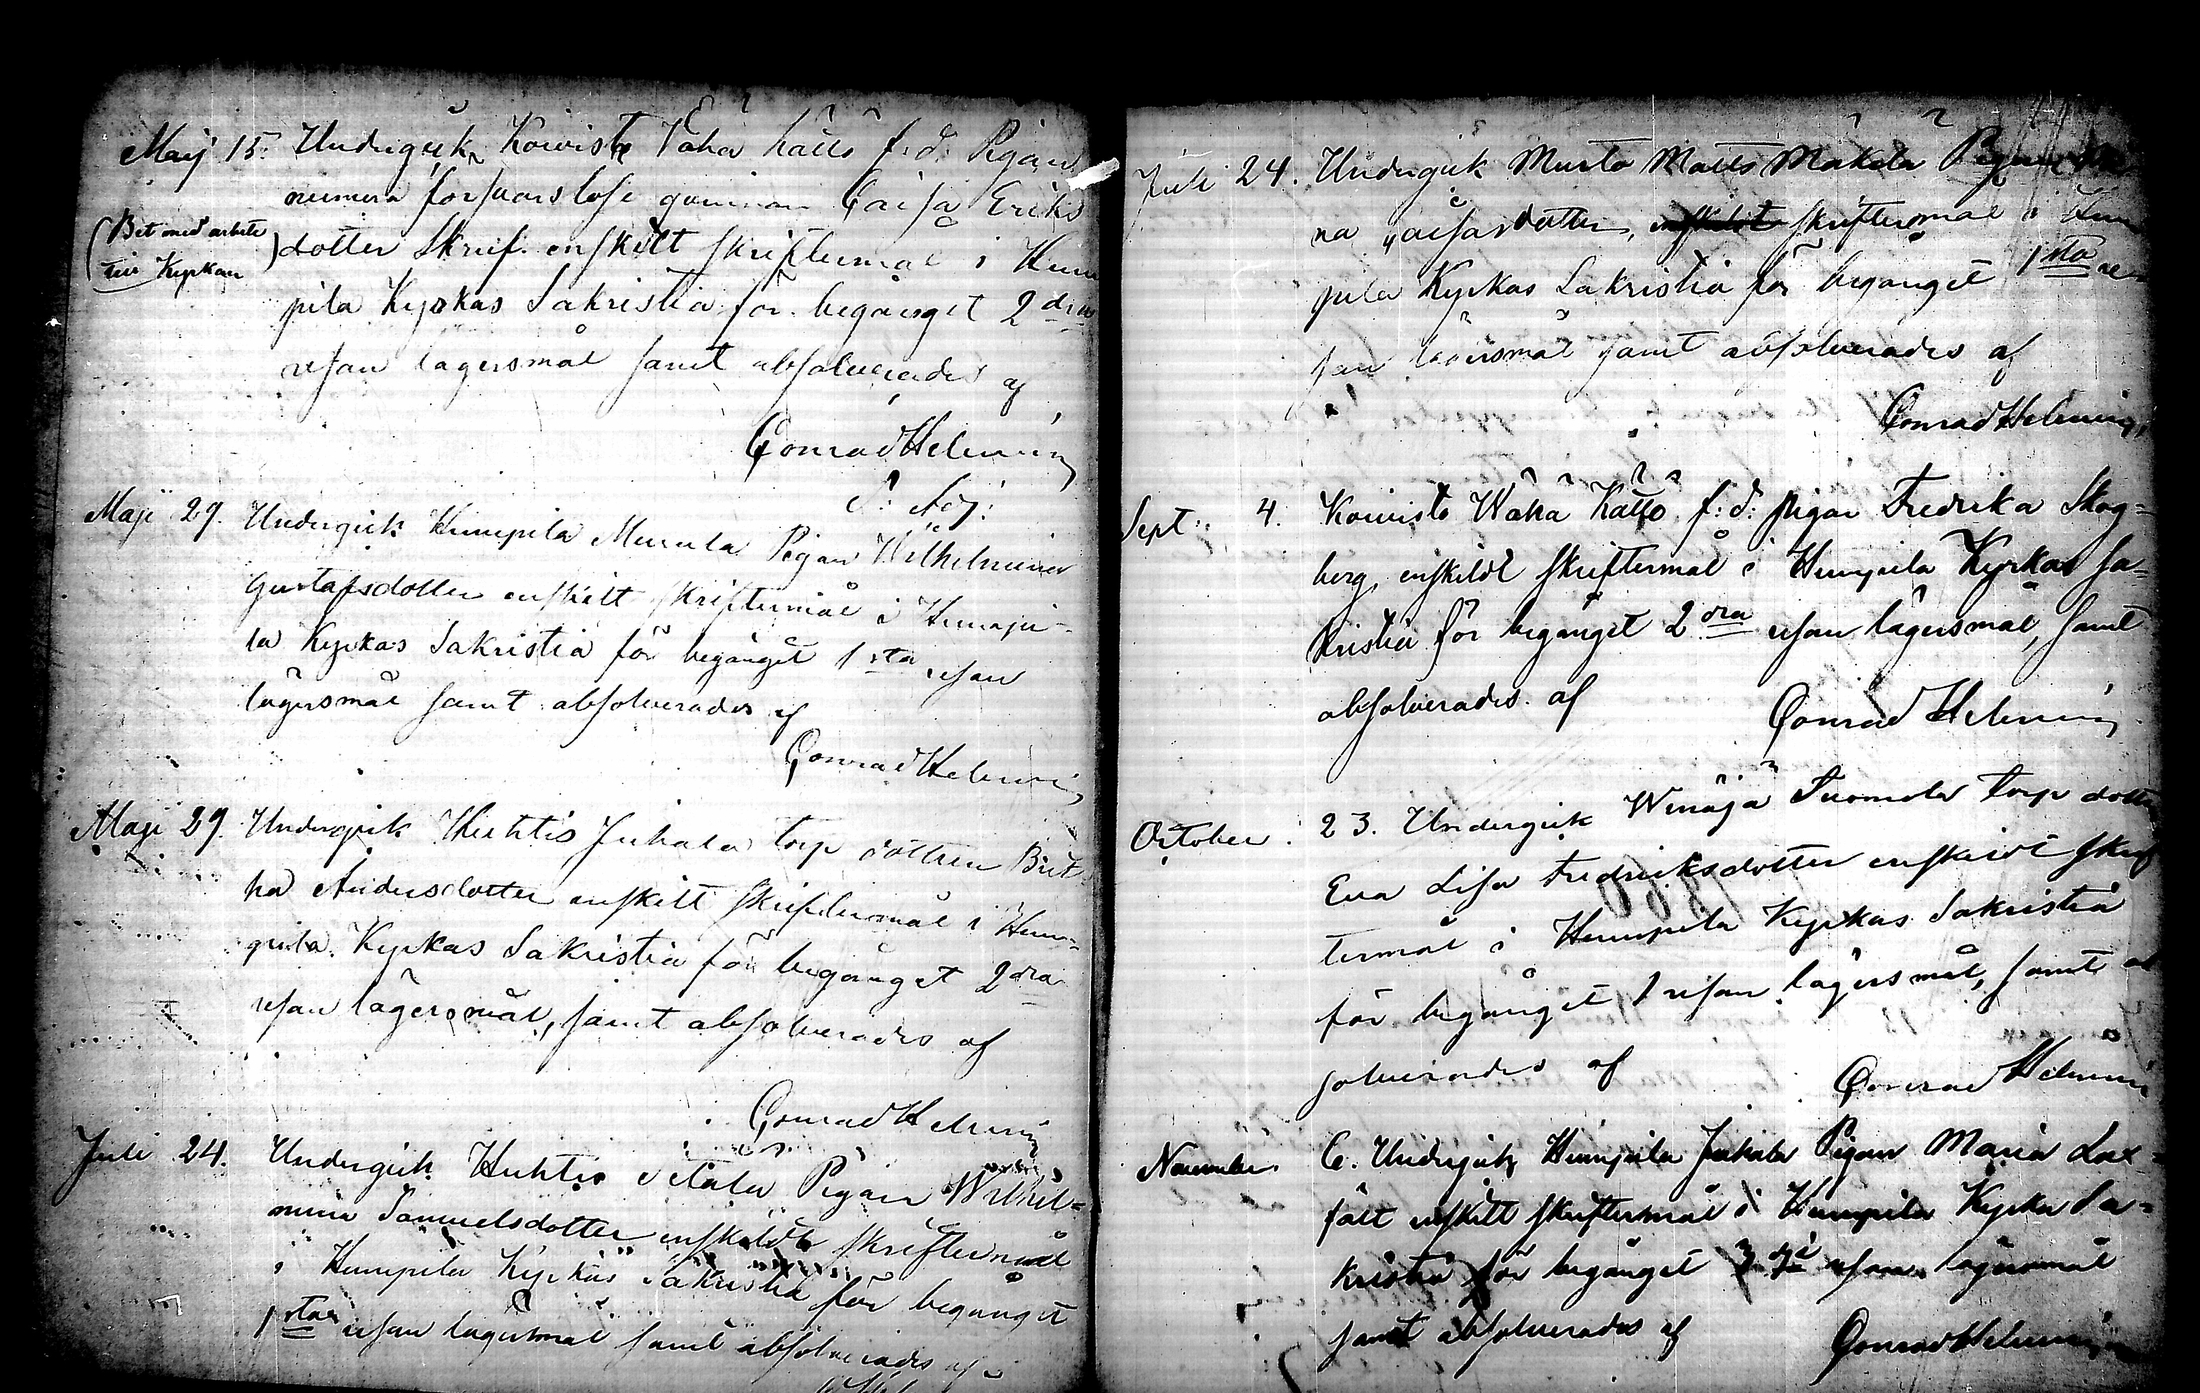 Maij 15. Undergick Koivisto Vähä Kättö f. d. Pigan
numera försvarslösa qvinnan Caisa Eriks
(Bet med arbete
till Kyrkan)
dotter Skrif. enskilt skriftermål i Hum
pila Kyrkas Sakristia för begånget 2 dra
resan lägersmål samt absolverades af
Conrad Helenius
Maji 29. Undergick Humpila Murula Pigan Wilhelmina
Gustafsdotter enskilt skriftermål i Humpi-
la Kyrkas Sakristia för begånget 1 sta resan
lägersmål samt absolverades af
Conrad Helenius
Maji 29. Undergick Huhtis Juhala torp dottren Brit
ha Andersdotter enskilt skriftermål i Hum=
pila Kyrkas Sakristia för begånget 2 dra
resan lägersmål, samt absolverades af
Conrad Helenius
Juli 24. Undergick Huhtis Pigan Wilhel=
mina Samuelsdotter enskildt skriftermål
i Humpila Kyrkas Sakristia för begånget
1 sta resan lägersmål samt absolverades af
Juli 24. Undergick Musto Matts Mäkelä Pigan
na dotter, enskildt skriftermål i Hum
pila Kyrkas Sakristia för begånget 1 sta re
san lägersmål samt absolverades af
Conrad Helenius
Sept: 4. Koivisto Wähä Kättö f: d: pigan Fredrika Skog=
berg, enskildt skriftermål i Humpila Kyrkas Sa=
kristia för begånget 2 dra resan lägersmål, samt
absolverades af
Conrad Helenius
October 23. Undergick Wenäjä Tuomola torp dotter
Eva Lisa Fredriksdotter enskildt skrif
termål i Humpila Kyrkas Sakristia
för begånget 1 resan lägersmål, samt ab
solverades af
Conrad Helenius
November 6. Undergick Humpila Juhala Pigan Maria Lax=
fält enskilt skriftermål i Humpila Kyrka Sa=
kristia för begånget 3 dje resan lägersmål
samt absolverades af
Conrad Helenius